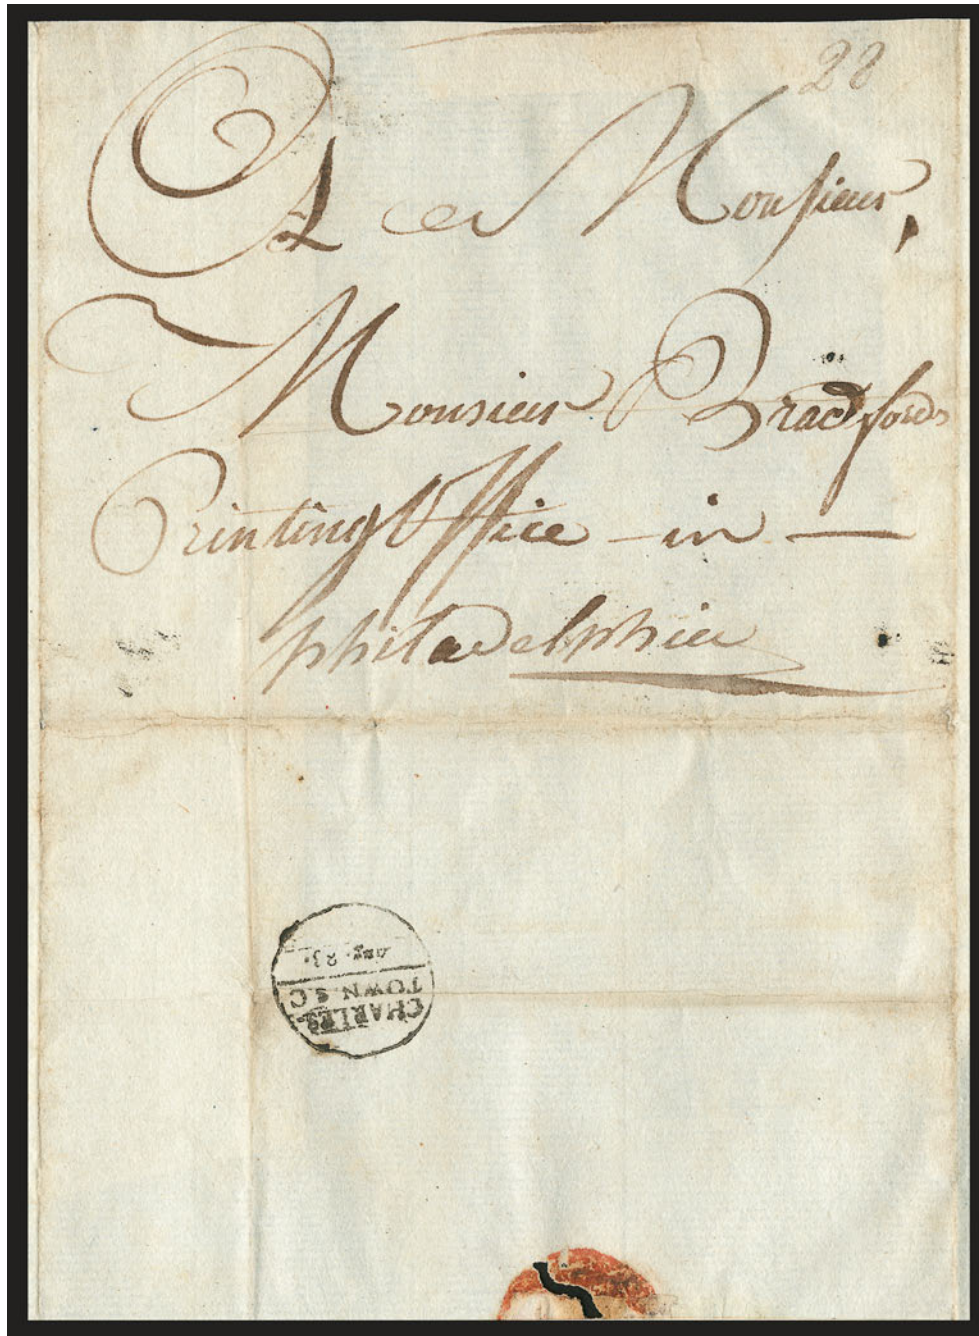 28
A Monsieur,
Monsieur Bradfords
Printing Office - in —
philadelphia
CHARLES
TOWN S.C
Aug. 23.